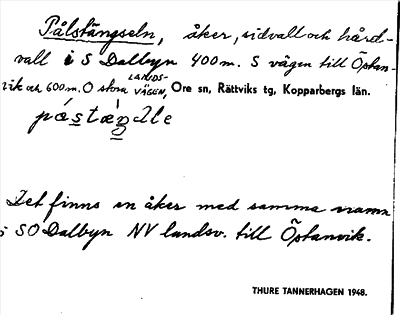 Pålstängseln, åker, sidvall och hård-
vall i S Dalbyn 400m. S vägen till Östan-
vik och 600m. O stora LANDS-
VÄGEN, Ore sn, Rättviks tg, Kopparbergs län.
Det finns en åker med samma namn
i SO Dalbyn NV landsv. till Östanvik.
THURE TANNERHAGEN 1948.